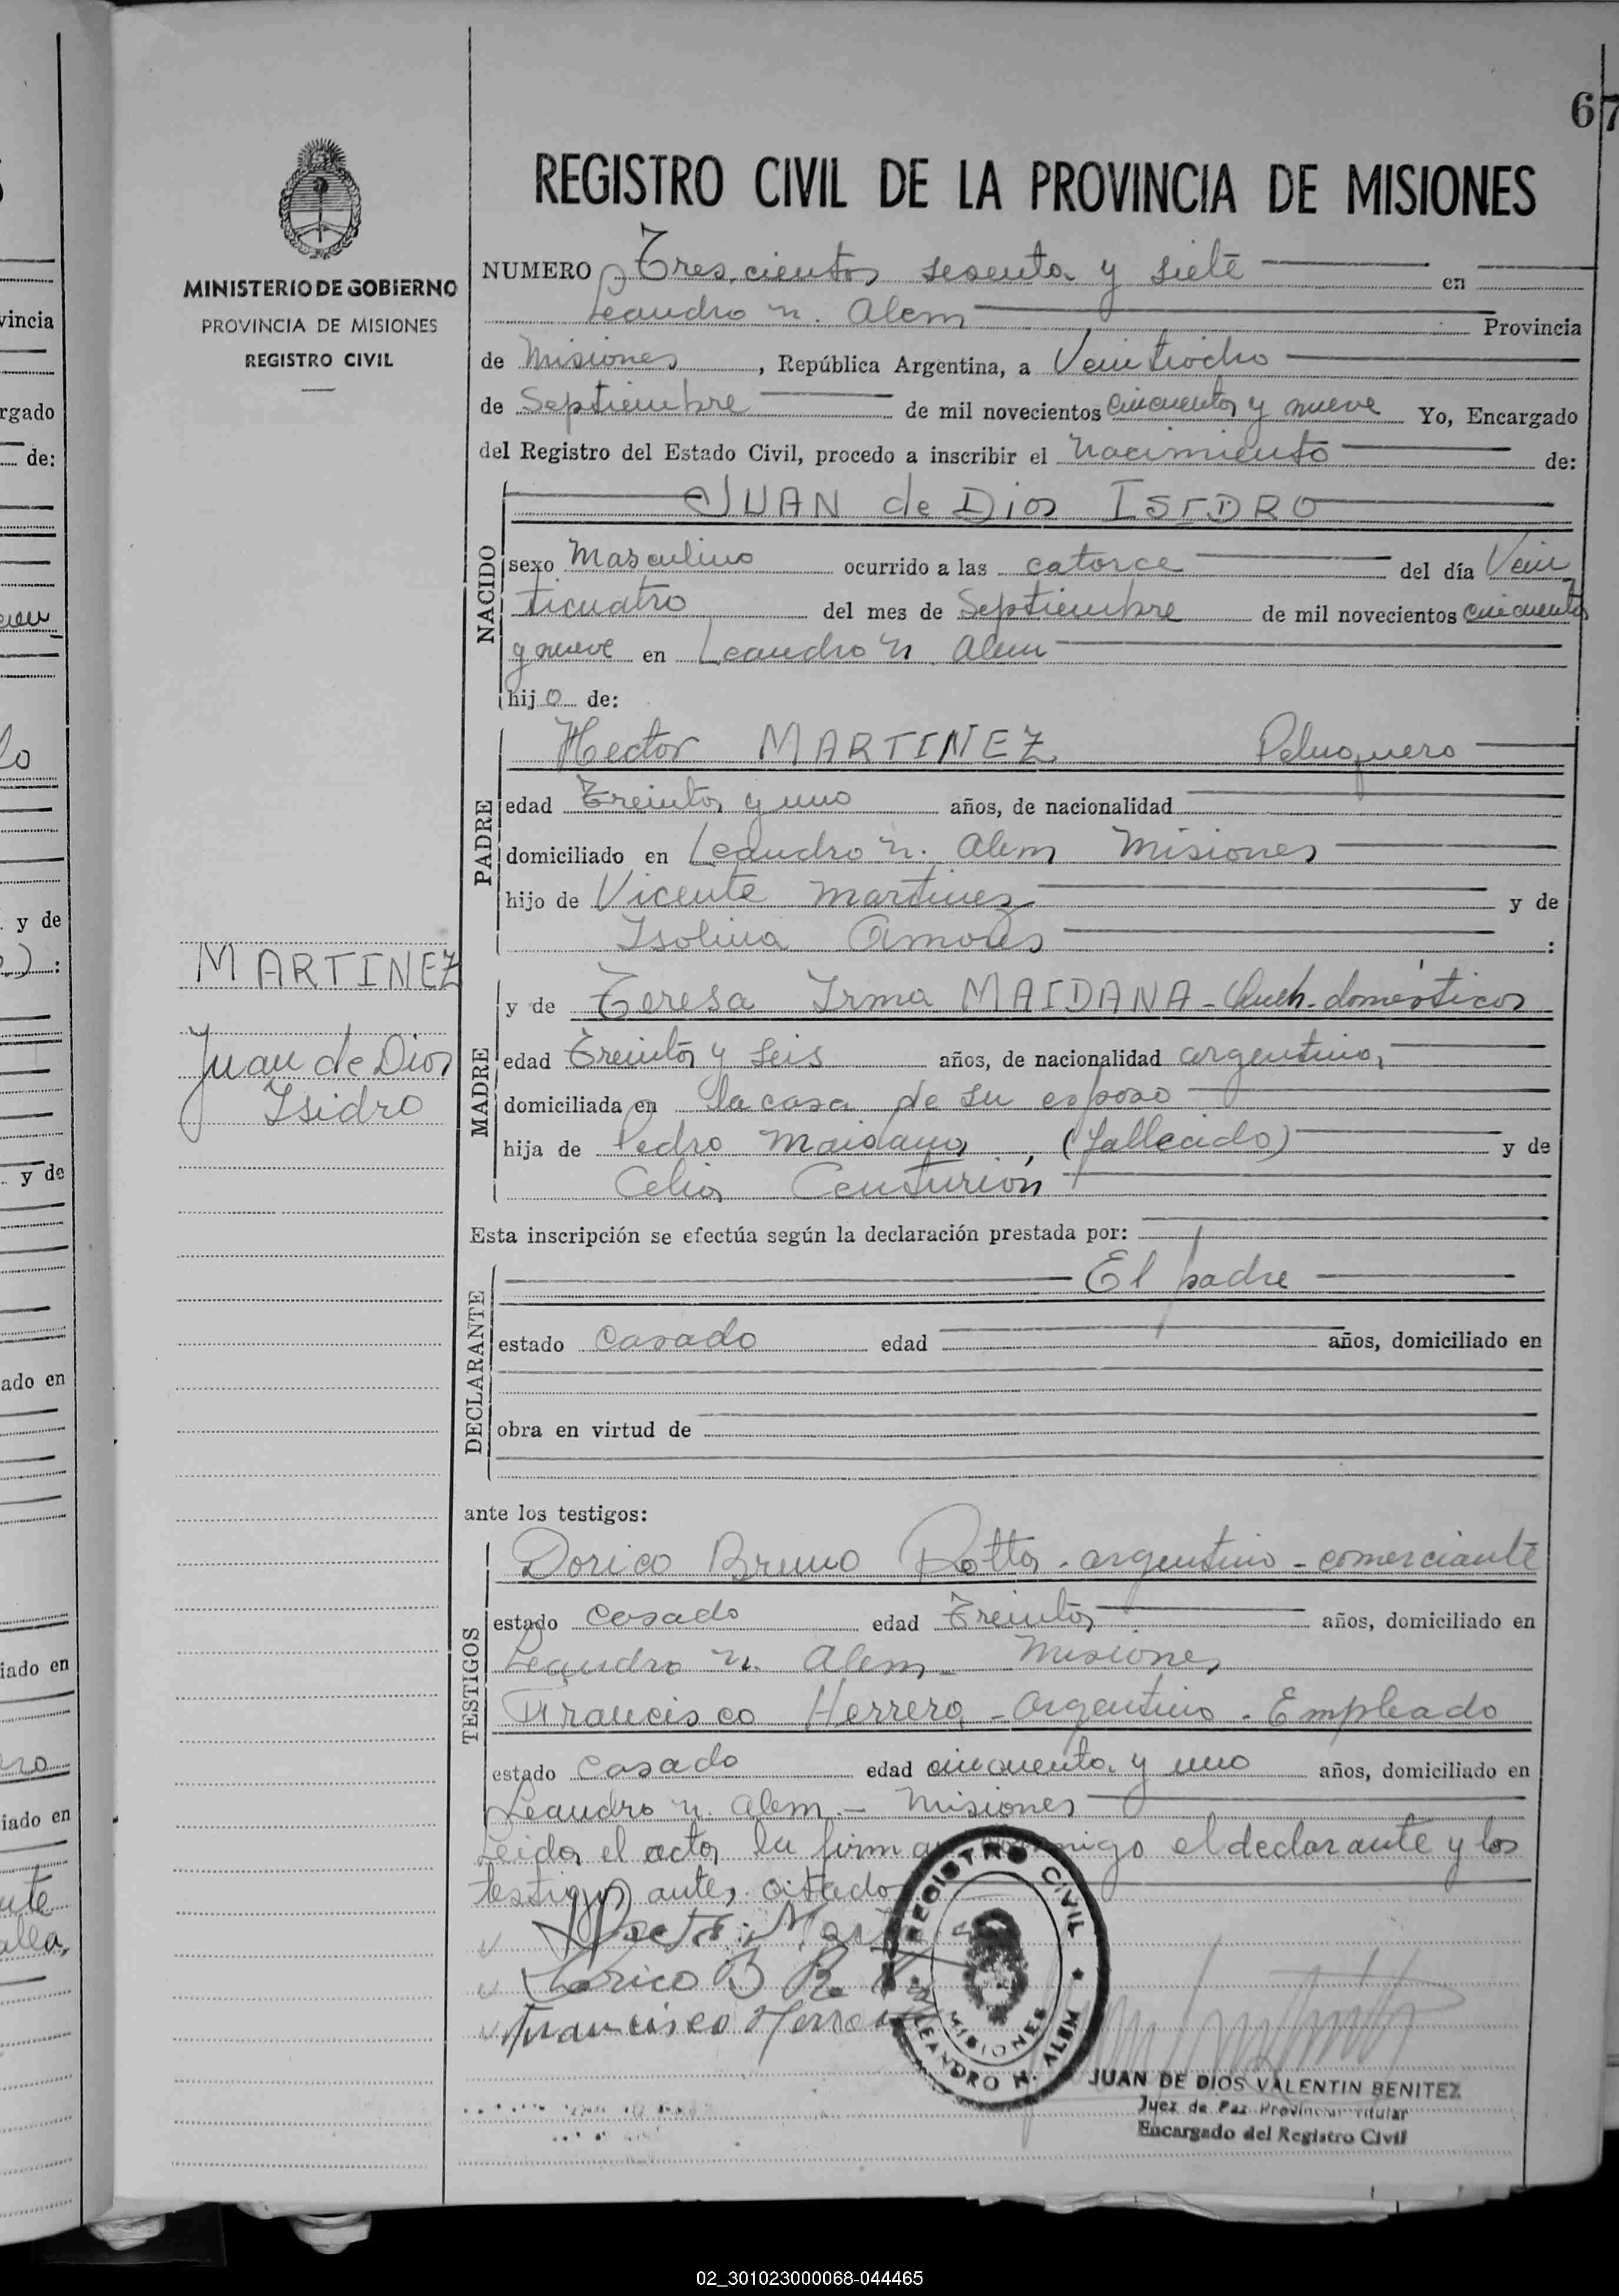 67
REGISTRO CIVIL DE LA PROVINCIA DE MISIONES
MINISTERIO DE GOBIERNO
PROVINCIA DE MISIONES
REGISTRO CIVIL
NUMERO Trescientos sesenta y siete en
Leandro N. Alem Provincia
de Misiones, República Argentina, a Veintiocho
de Septiembre de mil novecientos cincuenta y nueve Yo, Encargado
del Registro del Estado Civil, procedo a inscribir el nacimiento de:
NACIDO
JUAN de Dios ISIDRO
sexo Masculino ocurrido a las catorce del día Vein
ticuatro del mes de Septiembre de mil novecientos cincuenta
y nueve en Leandro N. Alem
hijo de:
PADRE
Hector MARTINEZ Peluquero
edad Treinta y uno años, de nacionalidad
domiciliado en Leandro N. Alem Misiones
hijo de Vicente Martinez y de
Isolina :
MARTINEZ
Juan de Dios
Isidro
MADRE
y de Teresa Irma MAIDANA - domésticos
edad Treinta y seis años, de nacionalidad argentina,
domiciliada en la casa de su esposo
hija de Pedro Maidana, (fallecido) y de
Celia Centurión
Esta inscripción se efectúa según la declaración prestada por:
DECLARANTE
El padre
estado casado edad años, domiciliado en
obra en virtud de
ante los testigos:
TESTIGOS
Dorico Bruno Rotta - argentino - comerciante
estado casado edad Treinta años, domiciliado en
Leandro N. Alem - Misiones
Francisco Herrera - Argentino - Empleado
estado casado edad cincuenta y uno años, domiciliado en
Leandro N. Alem - Misiones
Leida el acta la firman conmigo el declarante y los
testigos antes citados
Dorico B
Francisco Herrera
REGISTRO CIVIL
MISIONES
LEANDRO N. ALEM
JUAN DE DIOS VALENTIN BENITEZ
Juez de Paz Provincial Titular
Encargado del Registro Civil
vincia
rgado
de:
y de
y de
ado en
iado en
iado en
02_301023000068-044465